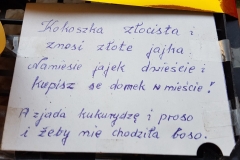 Kokoszka złocista i
znosi złote jajka
Naniesie jajek dwieście i
kupisz se domek w mieście!
A zjada kukurydzę i proso
i żeby nie chodziła boso.